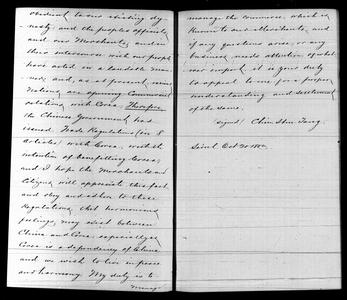 obedient to our existing dy-
nasty; and the peoples opposite,
and our Merchants, and in
their intercourse with our people
have acted in a laudable man-
ner; and, as at present, many
Nations are opening Commercial
relations with Corea, Therefore
the Chinese Government has
issued Trade Regulations (in 8
Articles) with Corea, with the
intention of benefitting Corea;
and I hope the Merchants and
Citizens will appreciate this fact,
and obey and adhere to these
Regulations, that harmonious
feelings, may exist between
China and Corea: especially as
Corea is a dependency of China
and we wish to live in peace
and harmony. My duty is to
manage
manage the Commerce, which is
known to our merchants, and
if any questions arise, or any
business needs attention of what-
ever import, it is your duty
to appeal to me for a proper
understanding and settlement
of the same.
signed/ Chin Shu Tang.
Seoul Oct 20 188